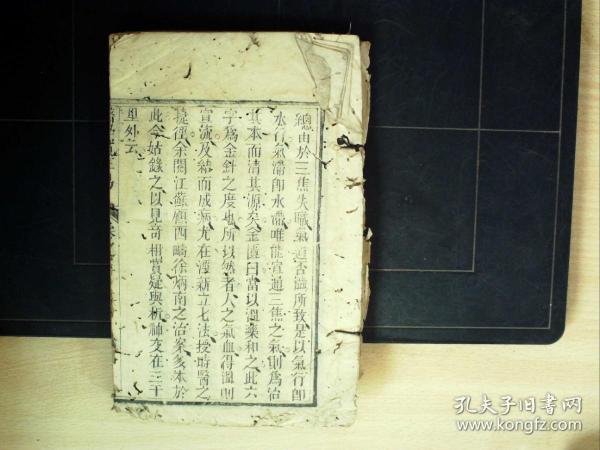 總由於三焦失職氣道否澀所致是以氣行即
水行氣滯即水滯唯能宣通三焦之氣則為治
其本而清其源矣金匱曰當以溫藥和之此六
字為金針之度也所以然者人之氣血得溫則
宣流及結而成痰尤在涇新立七法授時醫之
捷徑余閱江蘇顧西疇徐炳南之治案多本於
此今姑錄之以見奇相賞疑與析神交在三千
里外云
孔夫子旧书网
www.kongfz.com